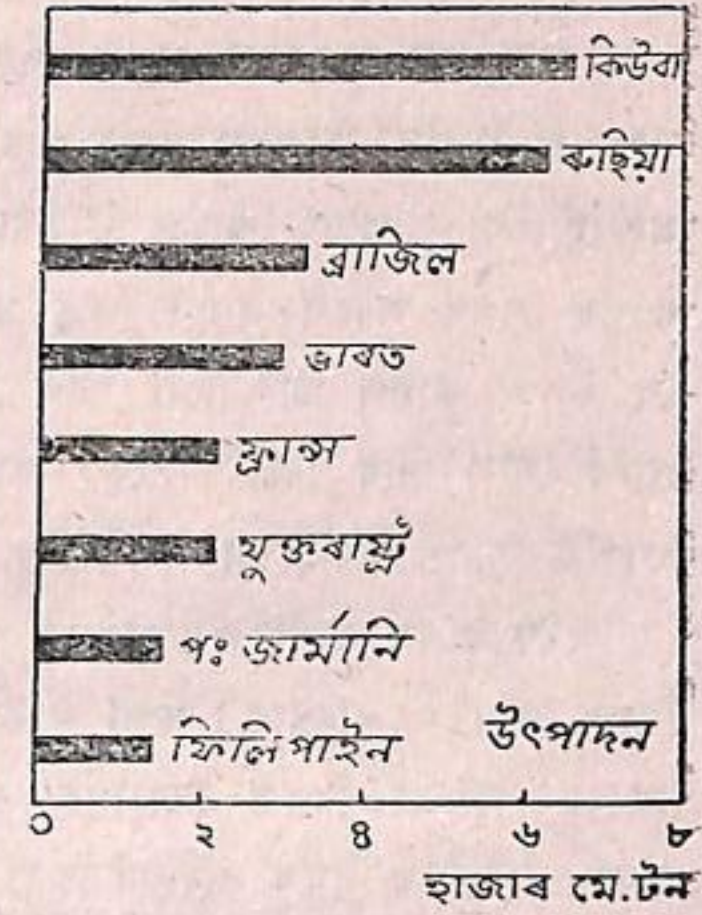 কিউবা
ৰুছিয়া
ব্ৰাজিল
ভাৰত
ফ্ৰান্স
যুক্তৰাষ্ট্ৰ
পঃ জাৰ্মানি
ফিলিপাইন
উৎপাদন
০ ২ ৪ ৬ ৮
হাজাৰ মে.টন